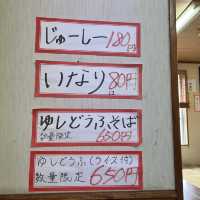 じゅーしー180円
いなり80円
ゆしどうふそば
数量限定 650円
ゆしどうふ(ライス付)
数量限定 650円